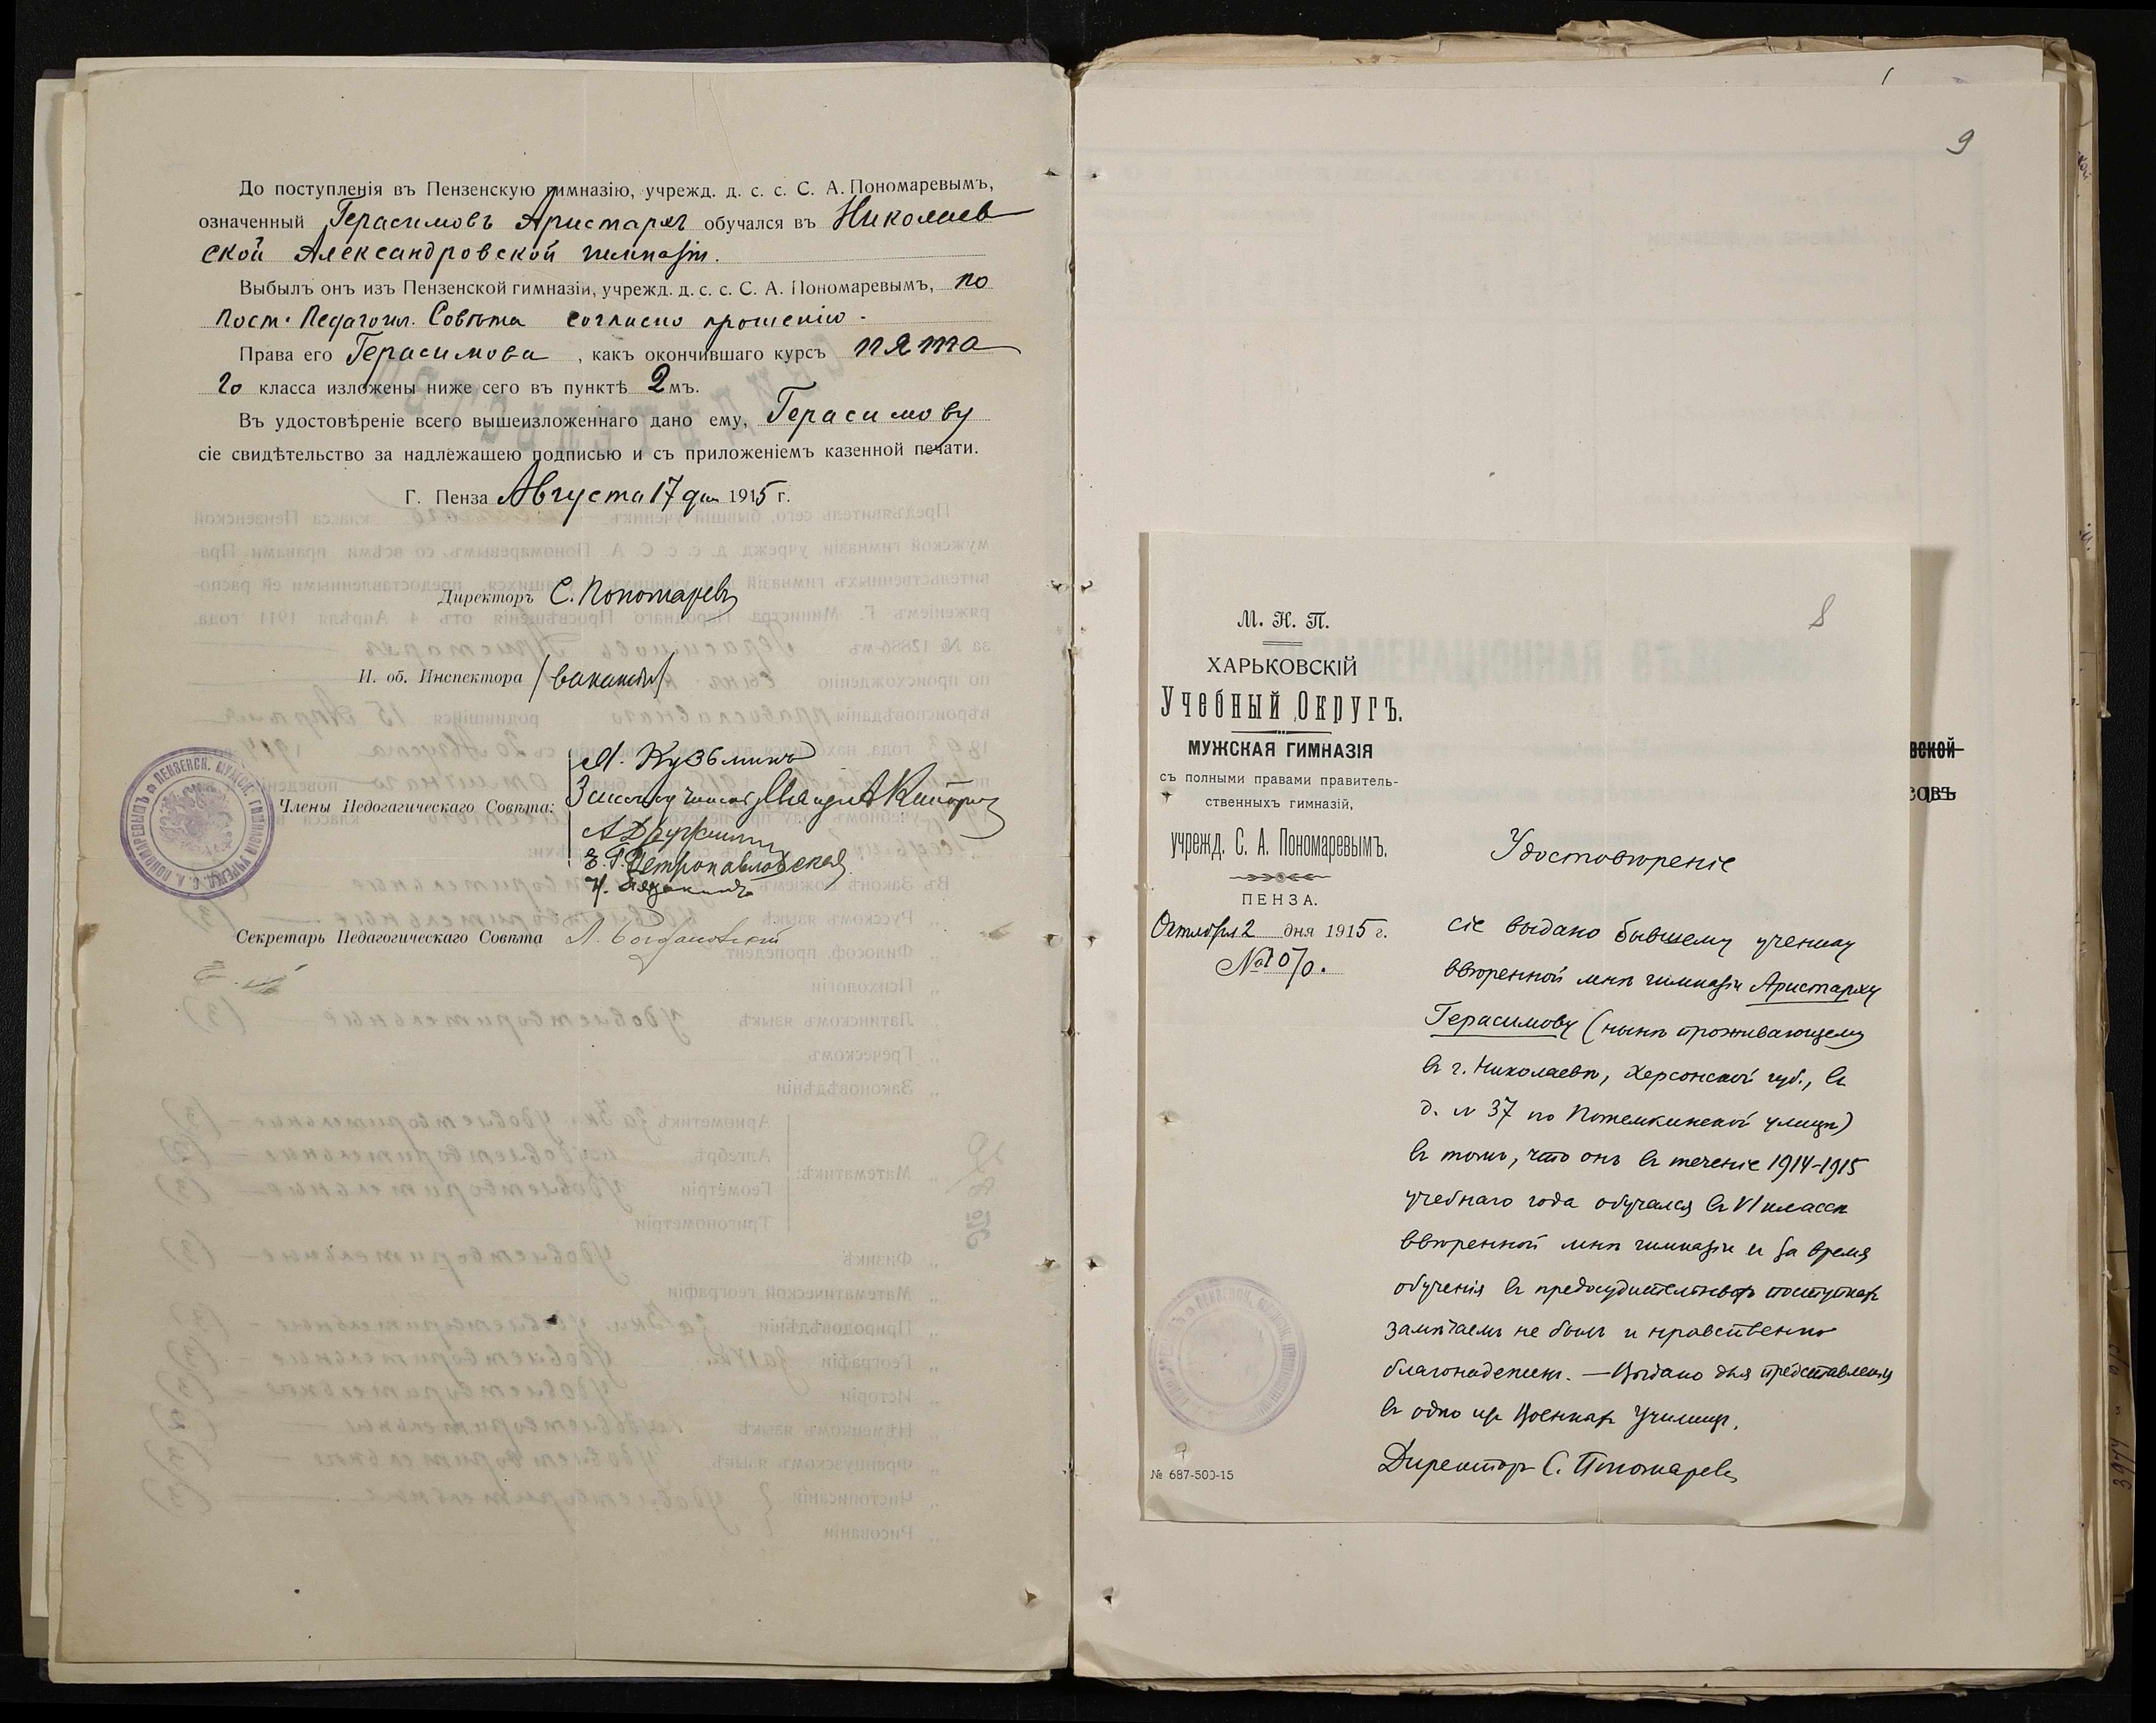 До поступленія въ Пензенскую гимназію, учрежд. д. с. с. С. А. Пономаревымъ,
означенный Герасимовъ Аристархъ обучался въ Николаев
ской Александровской гимназіи.
Выбылъ онъ изъ Пензенской гимназіи, учрежд. д. с. с. С. А. Пономаревымъ, по
пост. Педагогич. Совѣта согласно прошенію.
Права его Герасимова, какъ окончившаго курсъ пята
го класса изложены ниже сего въ пунктѣ 2мъ.
Въ удостовѣреніе всего вышеизложеннаго дано ему, Герасимову
сіе свидѣтельство за надлежашею подписью и съ приложеніемъ казенной печати.
Г. Пенза Августа 17 дня 1915 г.
Директоръ С. Пономаревъ
И. об. Инспектора /вакансія/
М. Кузьминъ
Члены Педогагическаго Совѣта: Законоучитель
А. Дружинин
Е. Г. Петропавловская
Секретарь Педагогическаго Совѣта Л. Богдановскій
9
8
М. Н. П.
ХАРЬКОВСКІЙ
Учебный Округъ.
МУЖСКАЯ ГИМНАЗІЯ
съ полными правами правитель-
ственныхъ гимназій,
учрежд. С. А. Пономаревымъ.
ПЕНЗА.
Октября 2 дня 1915 г.
№ 1070.
Удостовѣреніе
сіе выдано бывшему ученику
ввѣренной мнѣ гимназіи Аристарху
Герасимову (нынѣ проживающему
въ г. Николаевѣ, Херсонской губ., въ
д. № 37 по Потемкинской улицѣ)
въ томъ, что онъ въ теченіе 1914-1915
учебнаго года обучался въ VI классѣ
ввѣренной мнѣ гимназіи и за время
обученія въ предосудительныхъ поступкахъ
замѣчаемъ не былъ и нравственно
благонадеженъ. — Выдано для представленія
въ одно изъ Военныхъ Училищъ.
Директоръ С. Пономаревъ
№ 687-500-15
вской
совъ